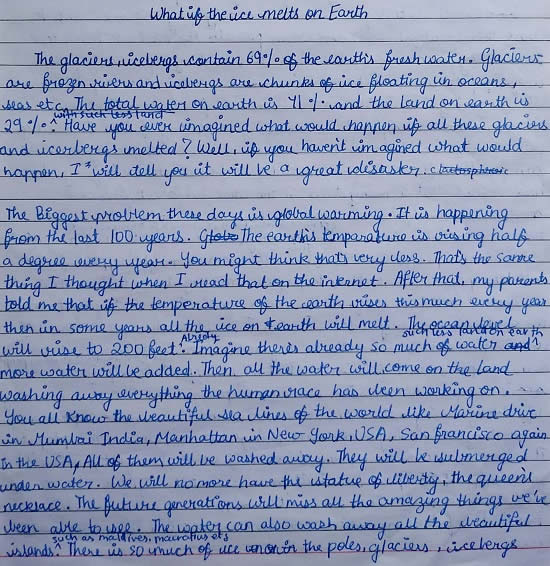 What if the ice melts on Earth
The glaciers, icebergs contain 69% of the earth's fresh water. Glaciers
are frozen rivers and icebergs are chunks of ice floating in oceans,
seas etc. The total water on earth is 71% and the land on earth is
with such less land
29%. Have you ever imagined what would happen if all these glaciers
and icerbergs melted? Well, if you haven't imagined what would
happen, I will tell you it will be a great disaster.
The Biggest problem these days is global warming. It is happening
from the last 100 years. The earth's temparature is rising half
a degree every year. You might think that's very less. That's the same
thing I thought when I read that on the internet. After that, my parents
told me that if the temperature of the earth rises this much every year
then in some years all the ice on earth will melt. The ocean level
such less land on earth
will rise to 200 feet. Imagine there's already so much of water and
more water will be added. Then all the water will come on the land
washing away everything the human race has been working on.
You all know the beautiful sea lines of the world like Marine drive
in Mumbai India, Manhattan in New York, USA, San francisco again
in the USA, All of them will be washed away. They will be submerged
under water. We will no more have the statue of liberty, the queen's
necklace. The future generations will miss all the amazing things we've
been able to see. The water can also wash away all the beautiful
such as maldives, mauratius etc
islands. There is so much of ice in the poles, glaciers, icebergs